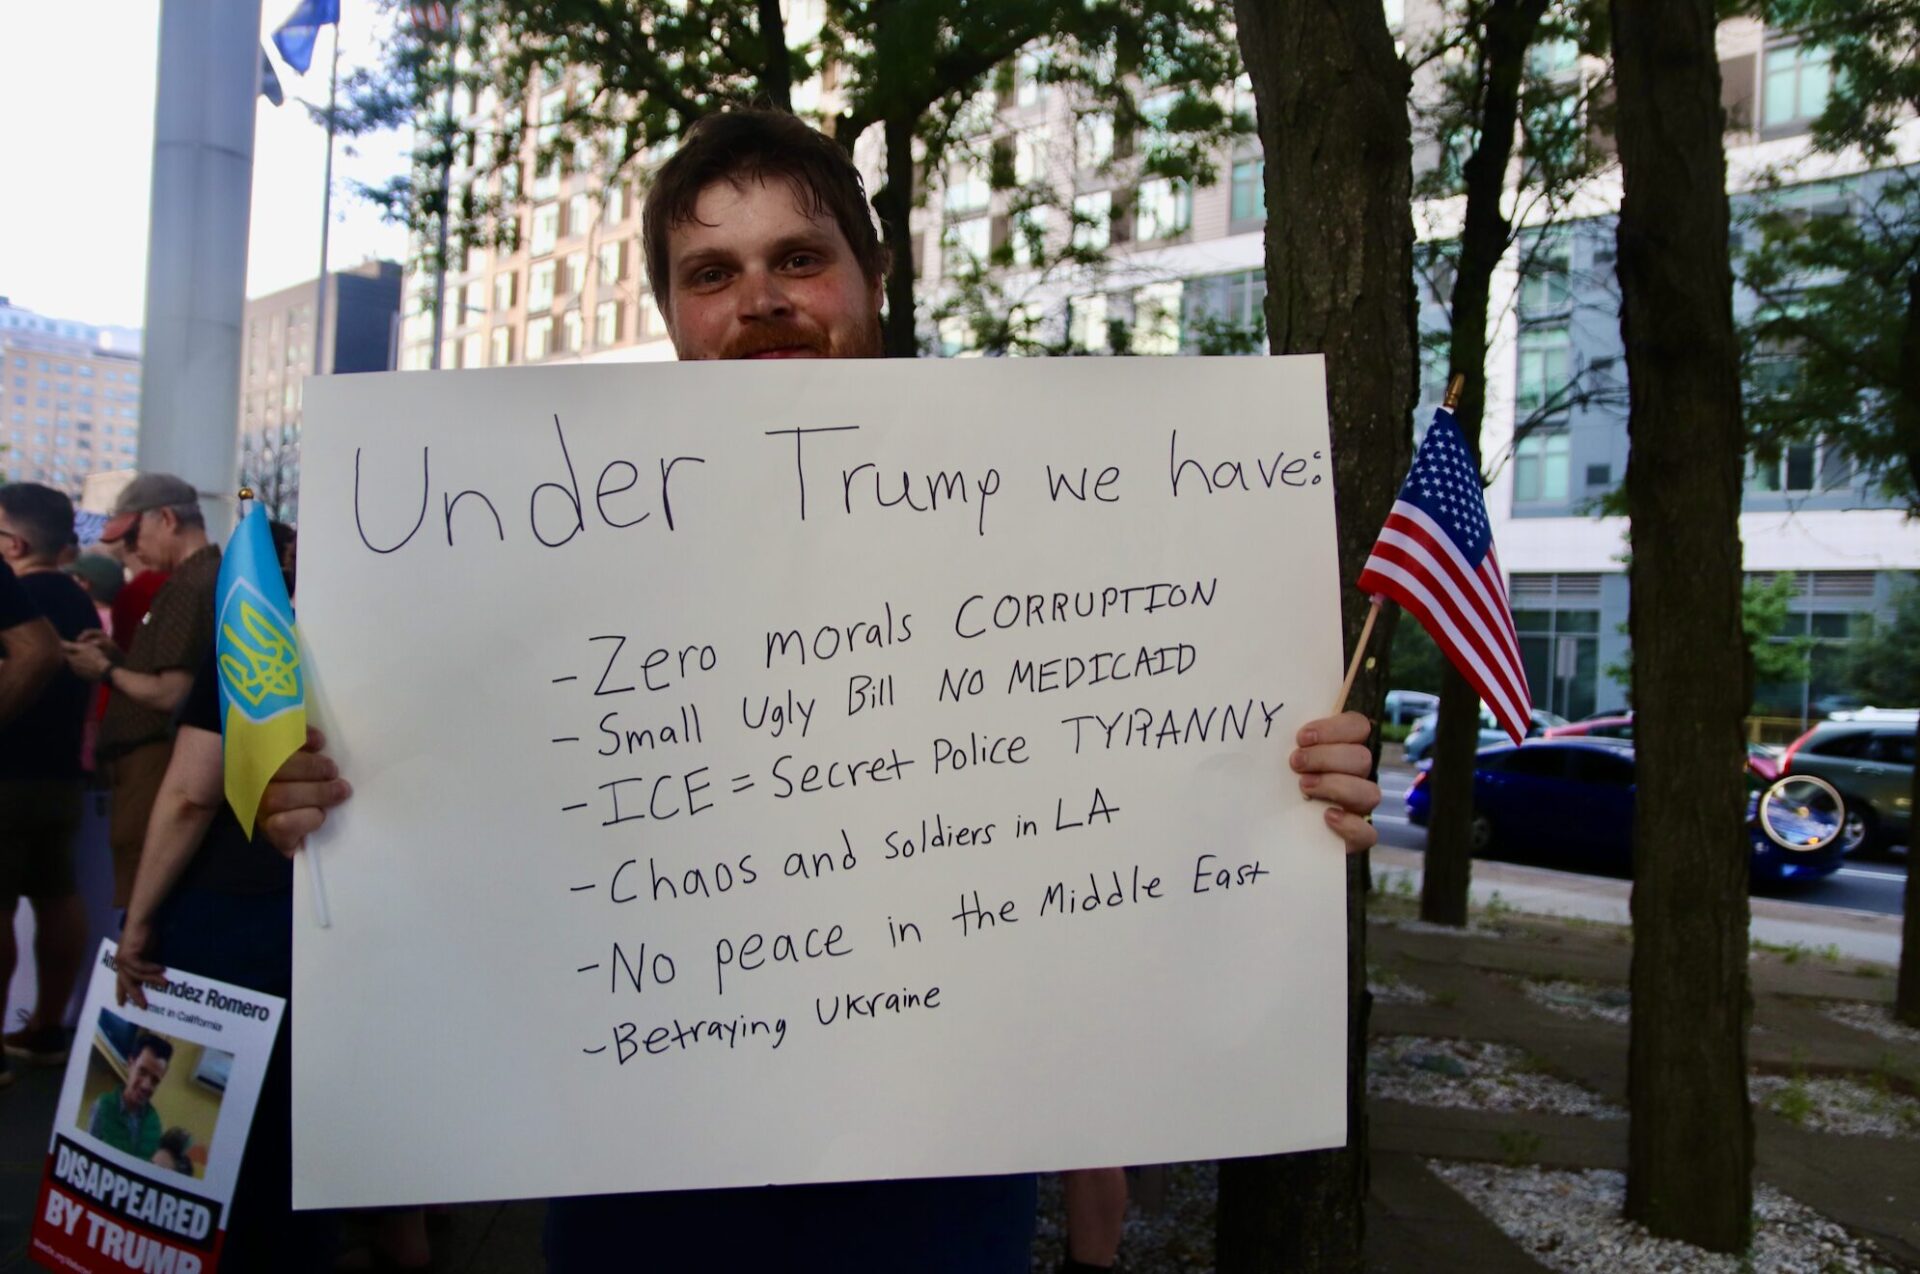 Under Trump we have:
-Zero morals CORRUPTION
-Small Ugly Bill NO MEDICAID
-ICE = Secret Police TYRANNY
-Chaos and Soldiers in LA
-No peace in the Middle East
-Betraying Ukraine
Romero
in California
DISAPPEARED
BY TRUMP